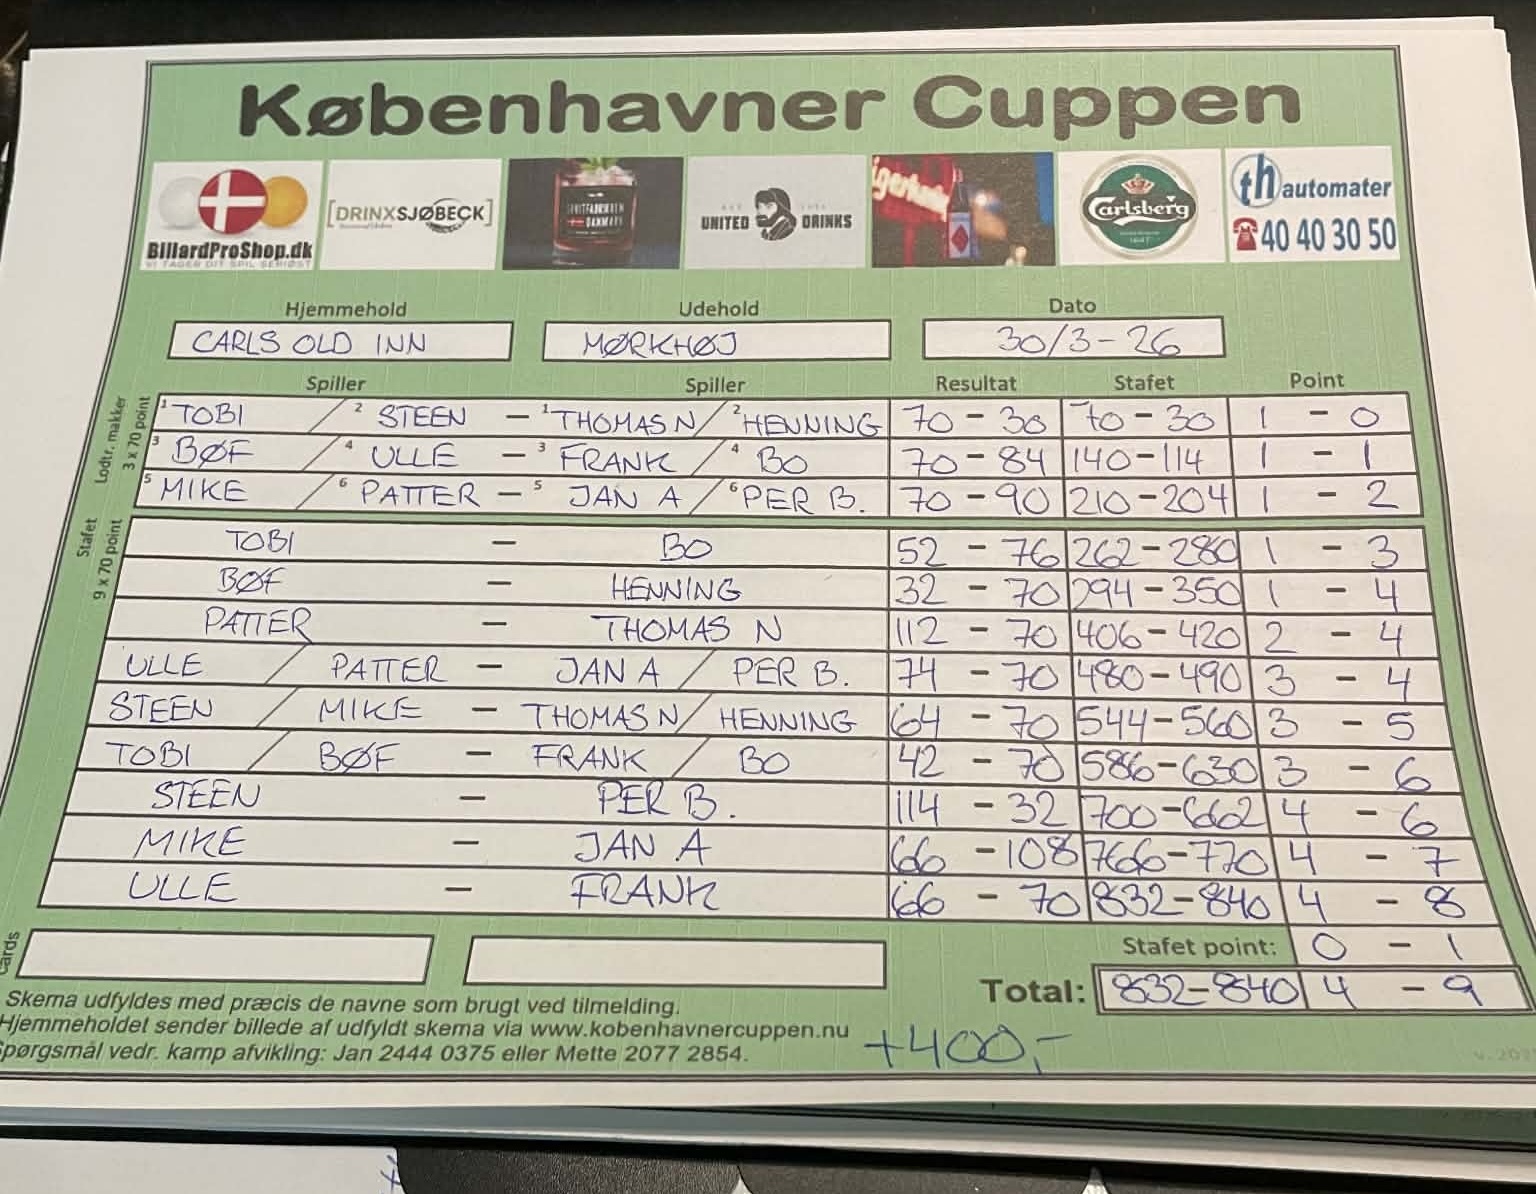 Københavner Cuppen
BillardProShop.dk
VI TAGER DIT SPIL SERIØST
[DRINXSJØBECK]
DANMARK
UNITED DRINKS
Carlsberg
th automater
40 40 30 50
Hjemmehold Udehold Dato
CARLS OLD INN MØRKHØJ 30/3-26
Spiller Spiller Resultat Stafet Point
Lodtr. makker
3 x 70 point
1 TOBI / 2 STEEN - 1 THOMAS N / 2 HENNING 70 - 30 70 - 30 1 - 0
3 BØF / 4 ULLE - 3 FRANK / 4 BO 70 - 84 140 - 114 1 - 1
5 MIKE / 6 PATTER - 5 JAN A / 6 PER B. 70 - 90 210 - 204 1 - 2
Stafet
9 x 70 point
TOBI - BO 52 - 76 262 - 280 1 - 3
BØF - HENNING 32 - 70 294 - 350 1 - 4
PATTER - THOMAS N 112 - 70 406 - 420 2 - 4
ULLE / PATTER - JAN A / PER B. 74 - 70 480 - 490 3 - 4
STEEN / MIKE - THOMAS N / HENNING 64 - 70 544 - 560 3 - 5
TOBI / BØF - FRANK / BO 42 - 70 586 - 630 3 - 6
STEEN - PER B. 114 - 32 700 - 662 4 - 6
MIKE - JAN A 66 - 108 766 - 770 4 - 7
ULLE - FRANK 66 - 70 832 - 840 4 - 8
Stafet point: 0 - 1
Total: 832 - 840 4 - 9
Skema udfyldes med præcis de navne som brugt ved tilmelding.
Hjemmeholdet sender billede af udfyldt skema via www.kobenhavnercuppen.nu
Spørgsmål vedr. kamp afvikling: Jan 2444 0375 eller Mette 2077 2854.
+400,-